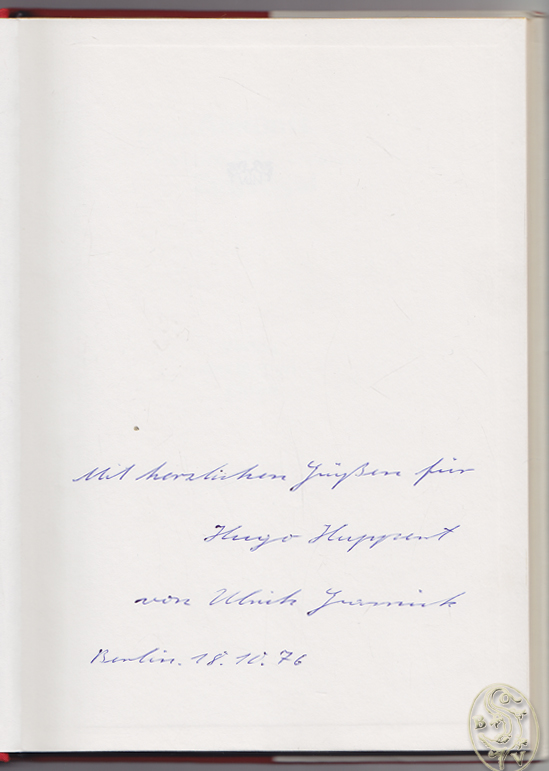 Mit herzlichen Grüßen für
Hugo Huppert
von Ulrich Gramick
Berlin. 18.10.76